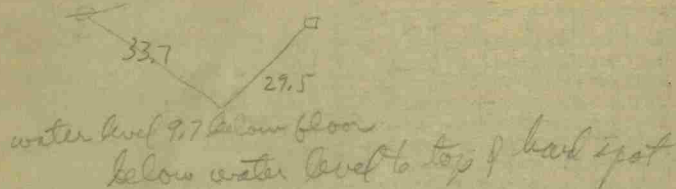 33.7
29.5
water level 9.7 below floor
below water level to top of hard spot